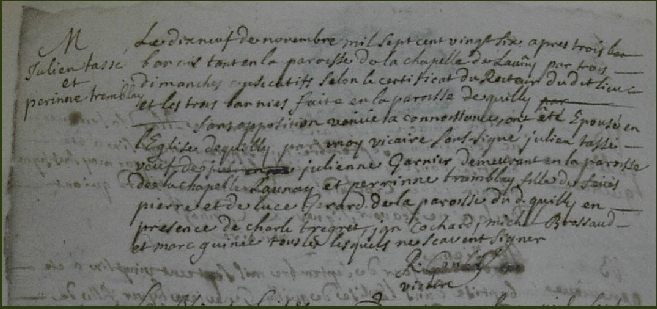 M
Julien tassé
et
perinne tremblay
Le dixneuf de novembre mil sept cent vingt six apres trois
bancs tant en la paroisse de la chapelle du Launay par trois
dimanches consecutifs selon le certificat du Recteur du dit lieu
et les trois bannies faite en la paroisse de quilly
sans opposition venue a la connoissence, ont eté Epousé en
l'Eglise de quilly par moy vicaire sous signé julien tassé
veuf de julienne Garnier demeurant en la paroisse
de la chapelle Launay et perrinne tremblay fille de
pierre et de luce Gerard de la paroisse de quilly en
presence de charle tregret, jan Cochard, michel Brossaud
et marc guinée tous lesquels ne scavent signer
vicaire